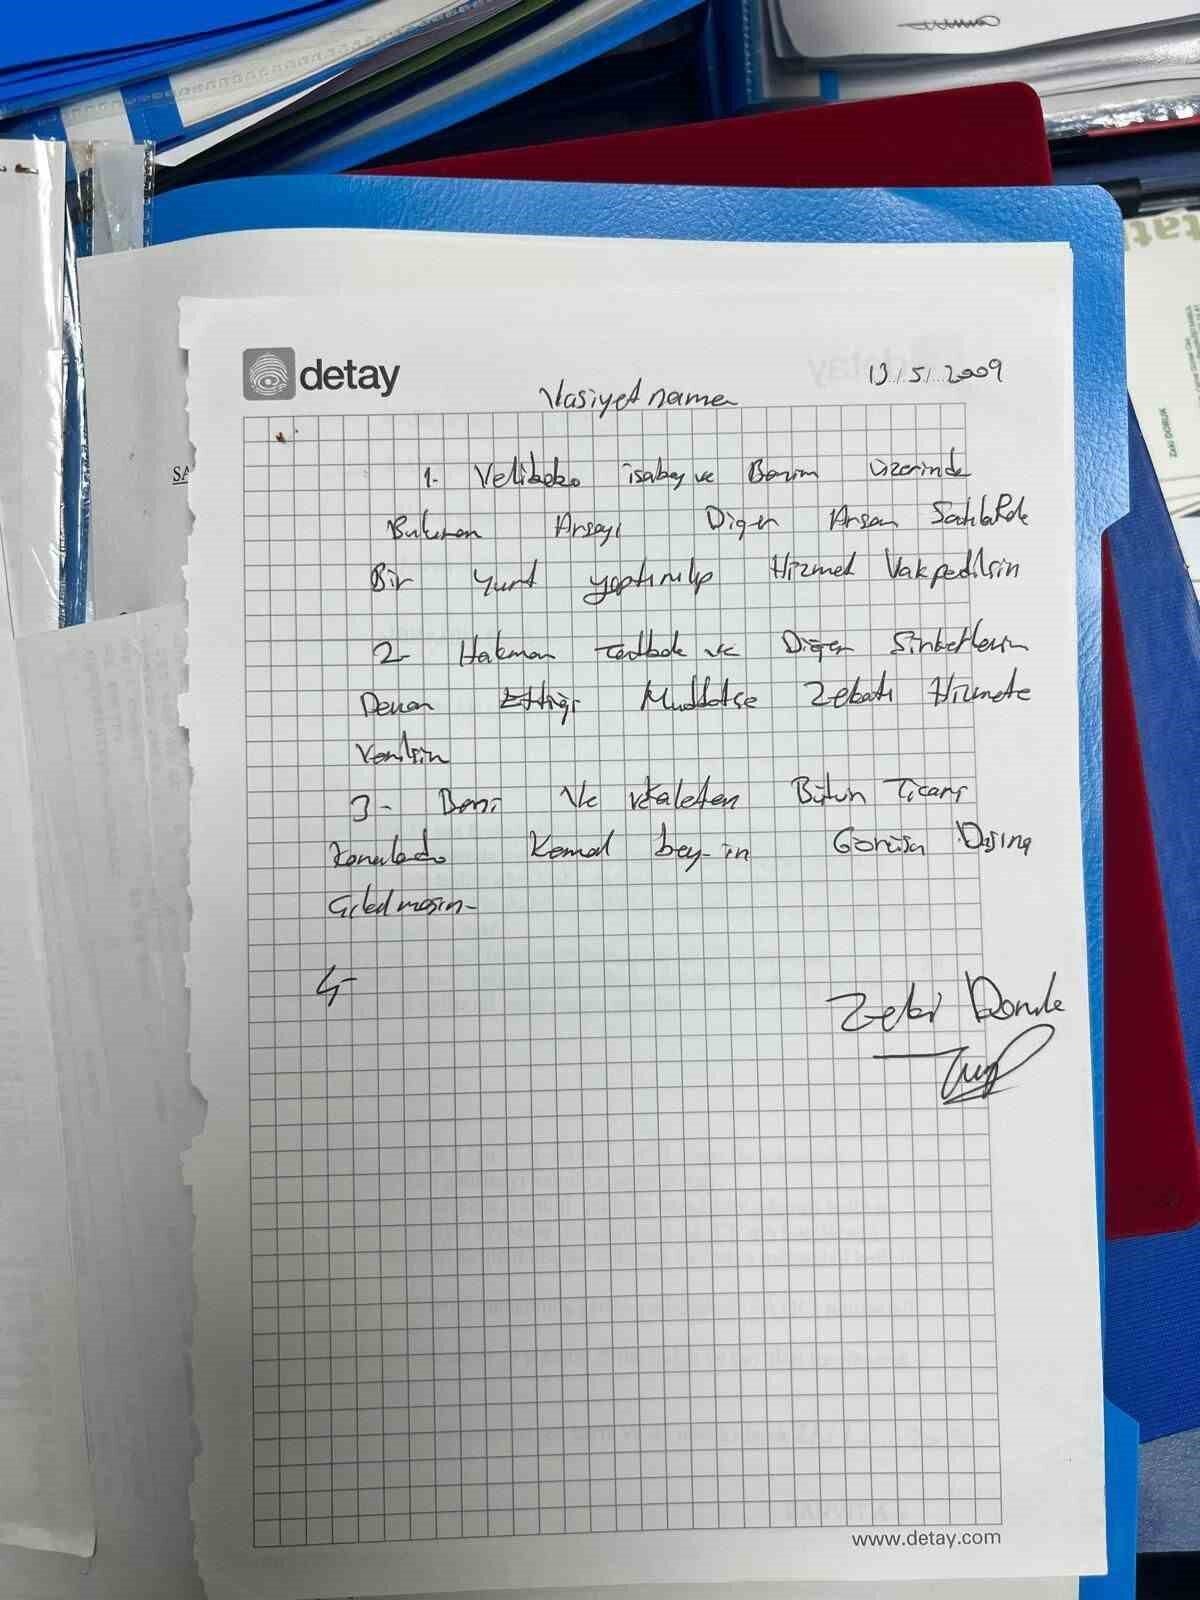 detay
13/5/2009
Vasiyet name
1- Velibaba isabey ve Benim üzerinde
Bulunan Arsayı Diger Arsam Satılarak
Bir yurt yaptırılıp Hizmet Vakpedilsin
2- Hakmar ve Diğer Sirketlerin
Devam Ettiği Muddetçe Zekatı Hizmete
Verilsin
3- Beni Ve vekaleten Bütun Ticari
Konularda Kemal bey-in Görüsü Dışına
Cıkılmasın-
4-
Zeki Doruk
www.detay.com
Zeki DORUK